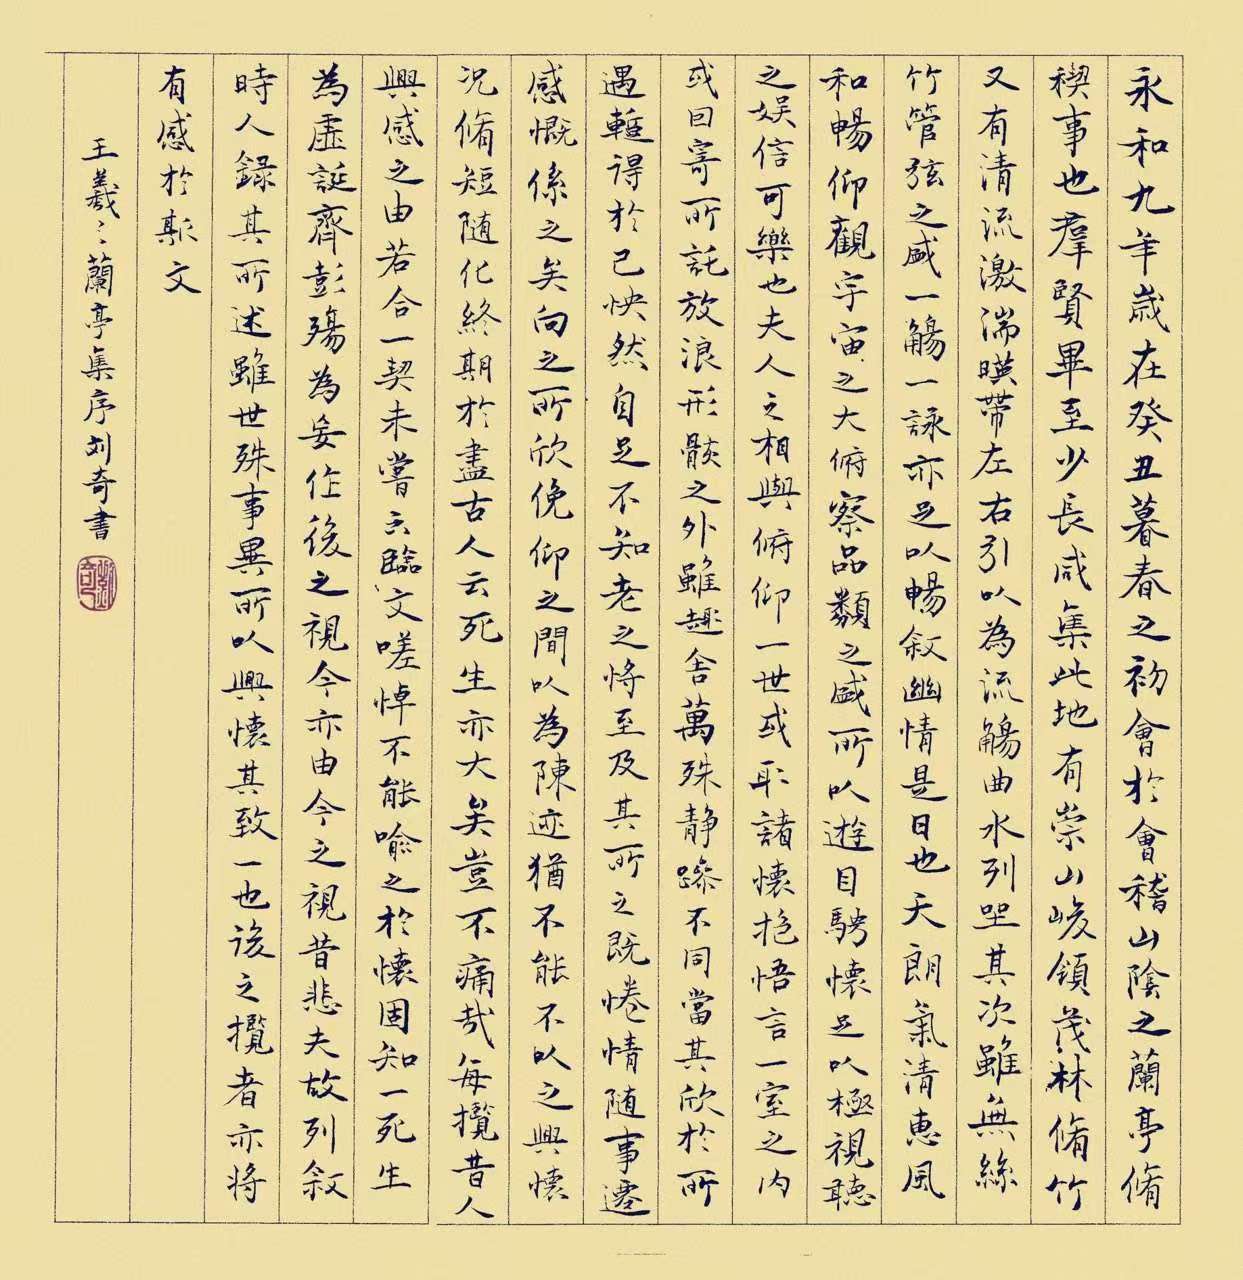 永和九年歲在癸丑暮春之初會於會稽山陰之蘭亭脩
稧事也羣賢畢至少長咸集此地有崇山峻領茂林脩竹
又有清流激湍暎帶左右引以為流觴曲水列坐其次雖無絲
竹管弦之盛一觴一詠亦足以暢叙幽情是日也天朗氣清惠風
和暢仰觀宇宙之大俯察品類之盛所以遊目騁懷足以極視聽
之娱信可樂也夫人之相與俯仰一世或取諸懷抱悟言一室之内
或因寄所託放浪形骸之外雖趣舍萬殊静躁不同當其欣於所
遇蹔得於己怏然自足不知老之將至及其所之既惓情隨事遷
感慨係之矣向之所欣俛仰之間以為陳迹猶不能不以之興懷
况脩短隨化終期於盡古人云死生亦大矣豈不痛哉每攬昔人
興感之由若合一契未嘗不臨文嗟悼不能喻之於懷固知一死生
為虚誕齊彭殤為妄作後之視今亦由今之視昔悲夫故列叙
時人録其所述雖世殊事異所以興懷其致一也後之攬者亦將
有感於斯文
王羲之蘭亭集序刘奇書
劉奇